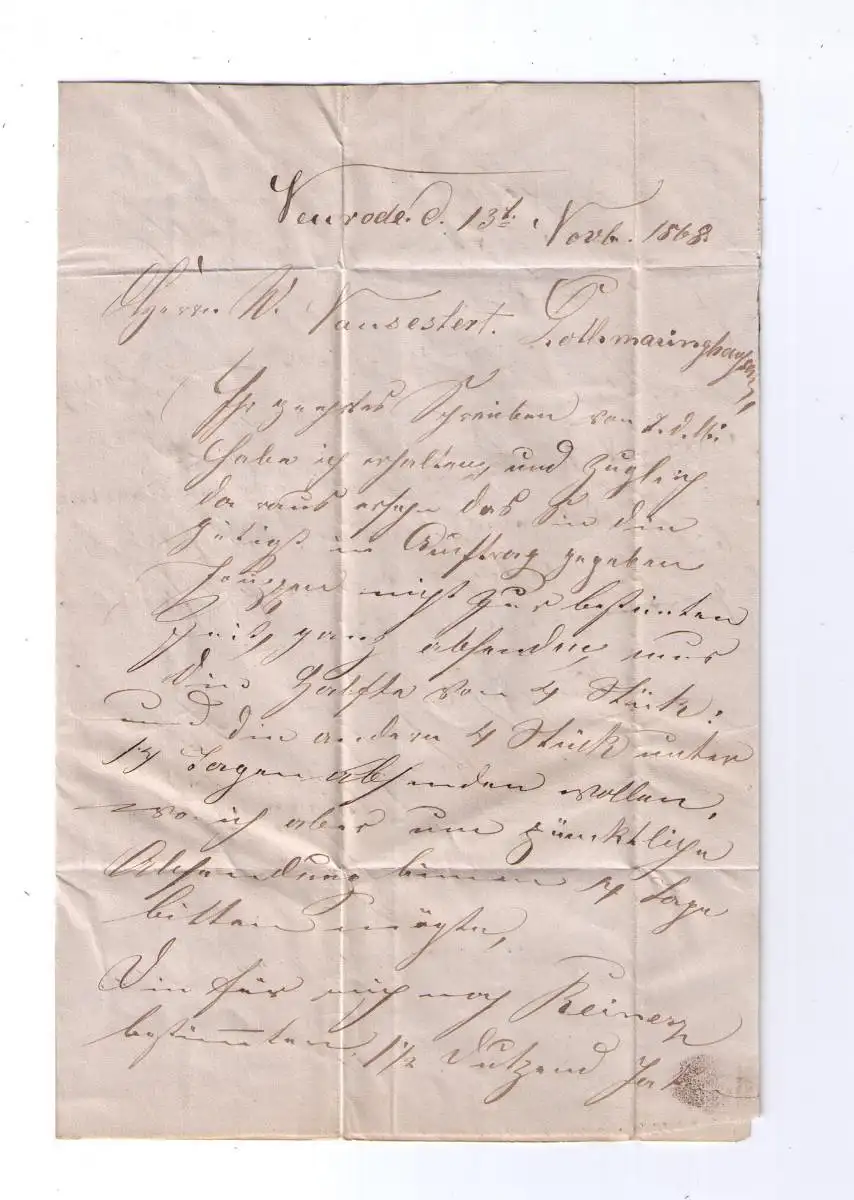 Neurode. d. 13t. Novb. 1868.
Herrn W. Vansestert. Gothmaringhausen,
Ihr geehrtes Schreiben von 7. d. M.
habe ich erhalten, und zugleich
da raus ersehn das Sie die
gütigst in Auftrag gegeben
nicht zur bestimten
Zeit, ganz absenden, nur
die Hälfte von 4 Stük:
und die andern 4 Stück unter
14 Tagen absenden wollen,
wo ich aber um pünktliche
Absendung binnen 14 Tage
bitten mögte,
Die für mich nach Reinerz
bestimmten 1½ Dutzend